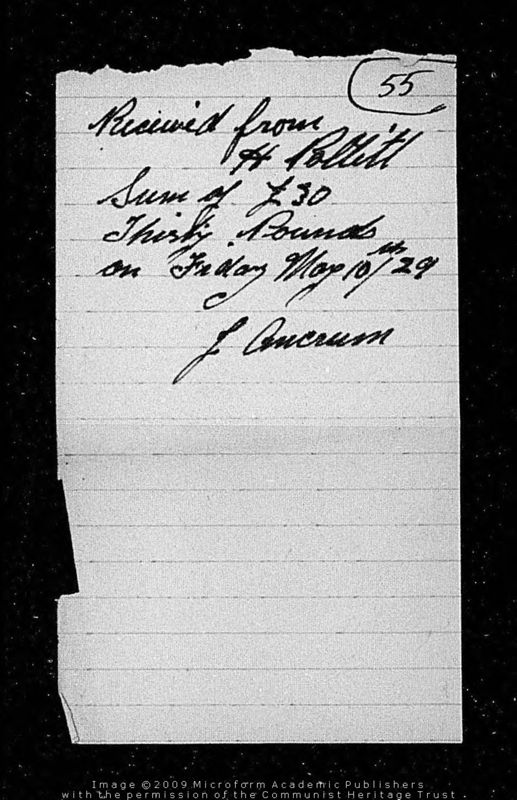 55
Received from
H Pollitt
Sum of £30
Thirty Pounds
on Friday May 10th/29
J Ancrum
Image ©2009 Microform Academic Publishers
with the permission of the Communist Heritage Trust.